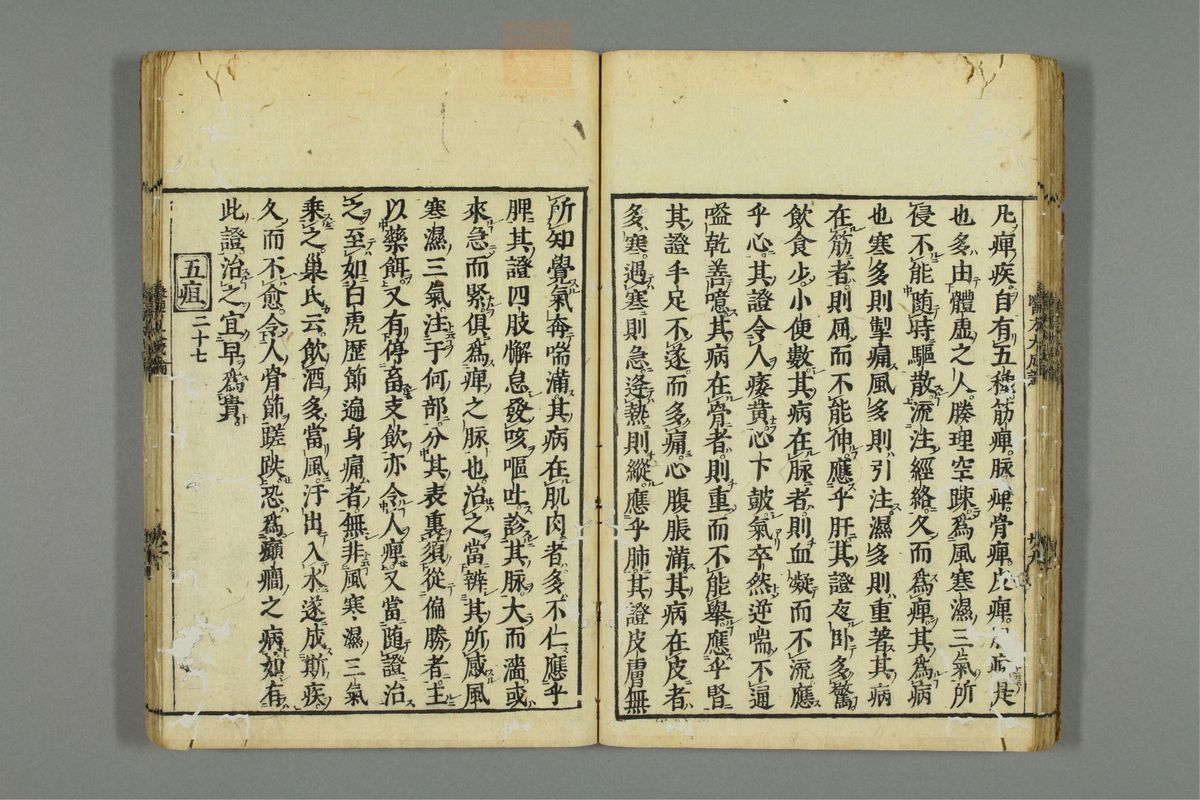 凡痺疾自有五種筋痺脉痺骨痺皮痺肌痺是
也多由體虛之人腠理空踈爲風寒濕三氣所
侵不能随時驅散流注經絡久而爲痺其爲病
也寒多則掣痛風多則引注濕多則重著其病
在筋者則屈而不能伸應乎肝其證夜卧多驚
飲食少小便數其病在脉者則血凝而不流應
乎心其證令人痿黄心下皷氣卒然逆喘不通
嗌乾善噫其病在骨者則重而不能舉應乎腎
其證手足不遂而多痛心腹脹滿其病在皮者
多寒遇寒則急逢熱則縱應乎肺其證皮膚無
所知覺氣奔喘滿其病在肌肉者多不仁應乎
脾其證四肢懈怠發咳嘔吐診其脉大而濇或
來急而緊俱爲痺之脉也治之當辨其所感風
寒濕三氣注于何部分其表裏須從偏勝者主
以藥餌又有停畜支飲亦令人痺又當随證治
之至如白虎歴節遍身痛者無非風寒濕三氣
乗之巢氏云飲酒多當風汗出入水遂成斯疾
久而不愈令人骨節蹉跌恐爲癲癇之病如有
此證治之宜早爲貴
五疽 二十七